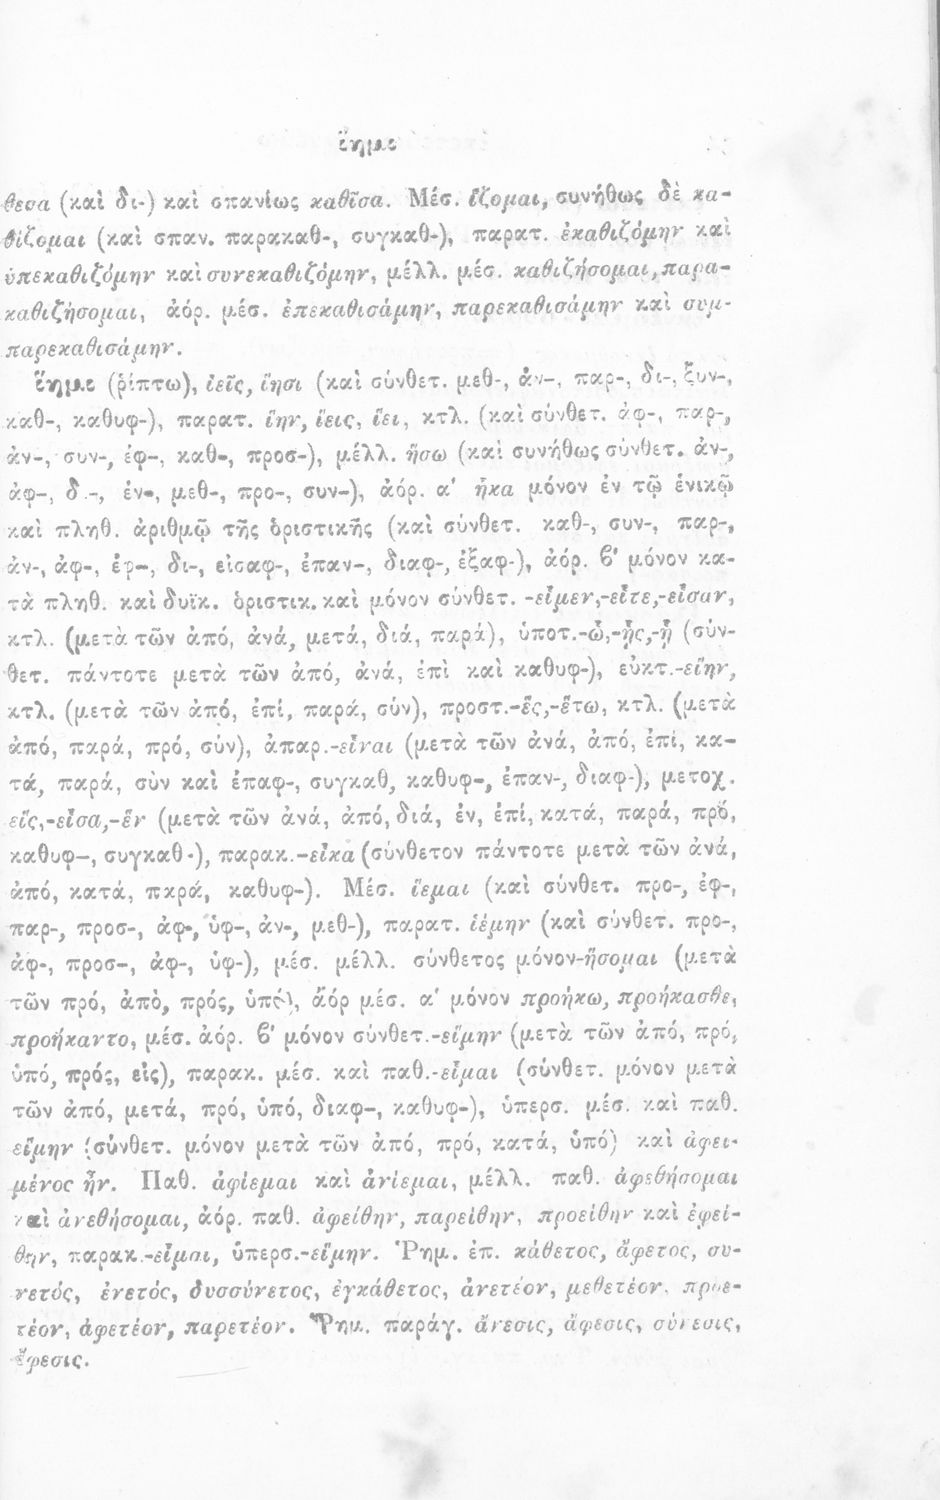 ἵημι
θεσα (καὶ δι-) καὶ σπανίως καθῖσα. Μέσ. ἵζομαι, συνήθως δὲ κα-
θίζομαι (καὶ σπαν. παρακαθ-, συγκαθ-), παρατ. ἐκαθιζόμην καὶ
ὑπεκαθιζόμην καὶ συνεκαθιζόμην, μέλλ. μέσ. καθιζήσομαι, παρα-
καθιζήσομαι, ἀόρ. μέσ. ἐπεκαθισάμην, παρεκαθισάμην καὶ συμ-
παρεκαθισάμην.
ἵημι (ῥίπτω), ἱεῖς, ἵησι (καὶ σύνθετ. μεθ-, ἀν-, παρ-, δι-, ξυν-,
καθ-, καθυφ-), παρατ. ἵην, ἵεις, ἵει, κτλ. (καὶ σύνθετ. ἀφ-, παρ-,
ἀν-, συν-, ἐφ-, καθ-, προσ-), μέλλ. ἥσω (καὶ συνήθως σύνθετ. ἀν-,
ἀφ-, δ.-, ἐν-, μεθ-, προ-, συν-), ἀόρ. α' ἧκα μόνον ἐν τῷ ἑνικῷ
καὶ πληθ. ἀριθμῷ τῆς ὁριστικῆς (καὶ σύνθετ. καθ-, συν-, παρ-,
ἀν-, ἀφ-, ἐφ-, δι-, εἰσαφ-, ἐπαν-, διαφ-, ἐξαφ-), ἀόρ. β' μόνον κα-
τὰ πληθ. καὶ δυϊκ. ὁριστικ. καὶ μόνον σύνθετ. -εἷμεν,-εἷτε,-εἷσαν,
κτλ. (μετὰ τῶν ἀπό, ἀνά, μετά, διά, παρά), ὑποτ.-ὦ,-ῇς,-ῇ (σύν-
θετ. πάντοτε μετὰ τῶν ἀπό, ἀνά, ἐπὶ καὶ καθυφ-), εὐκτ.-είην,
κτλ. (μετὰ τῶν ἀπό, ἐπί, παρά, σύν), προστ.-ἕς,-ἕτω, κτλ. (μετὰ
ἀπό, παρά, πρό, σύν), ἀπαρ.-εἷναι (μετὰ τῶν ἀνά, ἀπό, ἐπί, κα-
τά, παρά, σὺν καὶ ἐπαφ-, συγκαθ, καθυφ-, ἐπαν-, διαφ-), μετοχ.
εἵς,-εἷσα,-ἕν (μετὰ τῶν ἀνά, ἀπό, διά, ἐν, ἐπί, κατά, παρά, πρό,
καθυφ-, συγκαθ-), παρακ.-εἷκα (σύνθετον πάντοτε μετὰ τῶν ἀνά,
ἀπό, κατά, παρά, καθυφ-). Μέσ. ἵεμαι (καὶ σύνθετ. προ-, ἐφ-,
παρ-, προσ-, ἀφ-, ὑφ-, ἀν-, μεθ-), παρατ. ἱέμην (καὶ σύνθετ. προ-,
ἀφ-, προσ-, ἀφ-, ὑφ-), μέσ. μέλλ. σύνθετος μόνον-ἥσομαι (μετὰ
τῶν πρό, ἀπὸ, πρός, ὑπό), ἀόρ μέσ. α' μόνον προήκω, προήκασθε,
προήκαντο, μέσ. ἀόρ. β' μόνον σύνθετ.-εἵμην (μετὰ τῶν ἀπό, πρό,
ὑπό, πρός, εἰς), παρακ. μέσ. καὶ παθ.-εἷμαι (σύνθετ. μόνον μετὰ
τῶν ἀπό, μετά, πρό, ὑπό, διαφ-, καθυφ-), ὑπερσ. μέσ. καὶ παθ.
εἵμην (σύνθετ. μόνον μετὰ τῶν ἀπό, πρό, κατά, ὑπό) καὶ ἀφει-
μένος ἦν. Παθ. ἀφίεμαι καὶ ἀνίεμαι, μέλλ. παθ. ἀφεθήσομαι
καὶ ἀνεθήσομαι, ἀόρ. παθ. ἀφείθην, παρείθην, προείθην καὶ ἐφεί-
θην, παρακ.-εἷμαι, ὑπερσ.-εἵμην. Ῥημ. ἐπ. κάθετος, ἄφετος, συ-
νετός, ἐνετός, δυσσύνετος, ἐγκάθετος, ἀνετέον, μεθετέον, προε-
τέον, ἀφετέον, παρετέον. Ῥημ. παράγ. ἄνεσις, ἄφεσις, σύνεσις,
ἔφεσις.